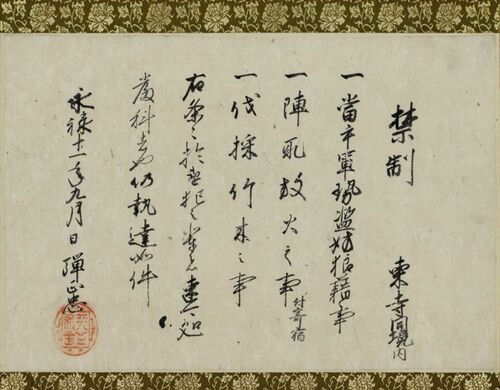 禁制 東寺同境内
一當手軍勢濫妨狼藉事
一陣取放火之事 付寄宿
一伐採竹木之事
右条々於違犯之輩者速可処
厳科者也仍執達如件
永禄十一年九月日 彈正忠